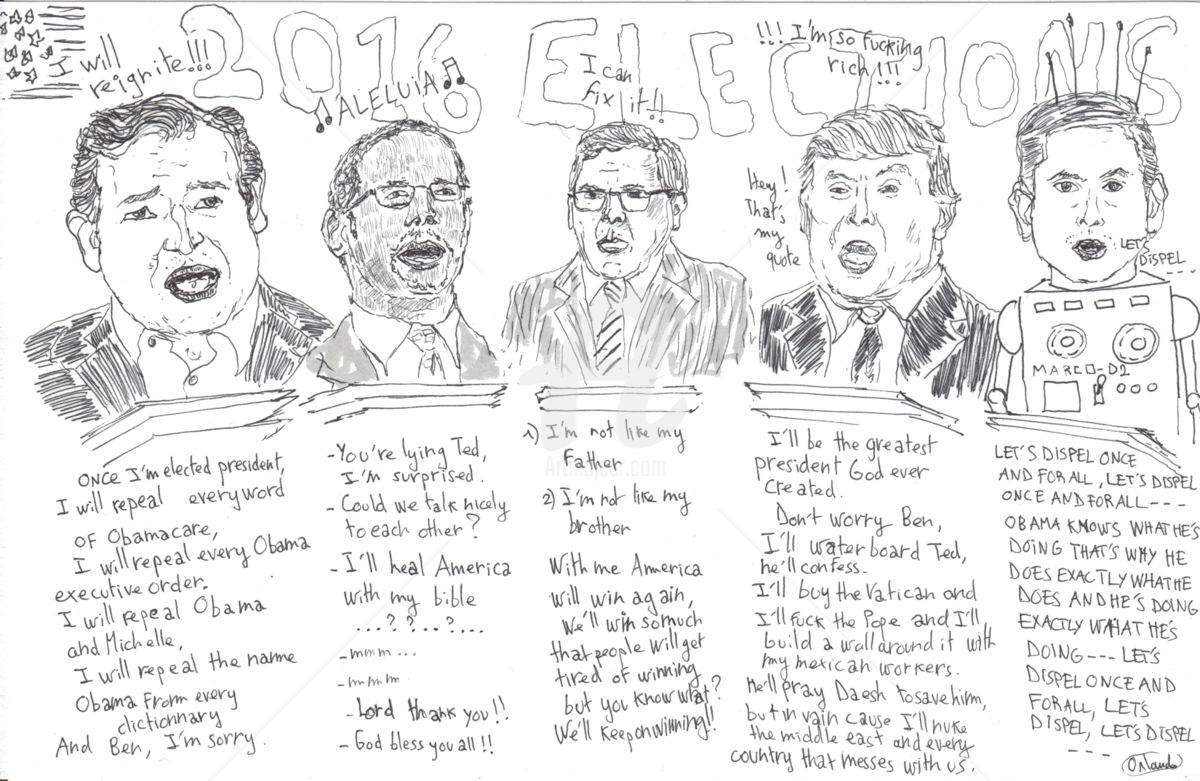 2016 ELECTIONS
I will
reignite!!!
ALELUIA
I can
fix it!!
!!! I'm so fucking
rich!!!
Hey!
That's
my
quote
LET'S
DISPEL
---
MARCO-D2
Once I'm elected president,
I will repeal everyword
of Obamacare,
I will repeal every Obama
executive order.
I will repeal Obama
and Michelle,
I will repeal the name
Obama from every
dictionnary
And Ben, I'm sorry.
-You're lying Ted,
I'm surprised.
- Could we talk nicely
to each other?
- I'll heal America
with my bible
...??...?....
-mmm...
-mmm
- Lord thank you!!
- God bless you all!!
1) I'm not like my
Father
2) I'm not like my
brother
With me America
will win again,
We'll win so much
that people will get
tired of winning
but you know what?
We'll keep on winning!!
I'll be the greatest
president God ever
created.
Don't worry Ben,
I'll waterboard Ted,
he'll confess.
I'll buy the Vatican and
I'll fuck the Pope and I'll
build a wall around it with
my mexican workers.
He'll pray Daesh to save him,
but in vain cause I'll nuke
the middle east and every
country that messes with us.
LET'S DISPEL ONCE
AND FOR ALL, LET'S DISPEL
ONCE AND FOR ALL---
OBAMA KNOWS WHAT HE'S
DOING THAT'S WHY HE
DOES EXACTLY WHAT HE
DOES AND HE'S DOING
EXACTLY WHAT HE'S
DOING--- LET'S
DISPEL ONCE AND
FOR ALL, LET'S
DISPEL, LET'S DISPEL
---